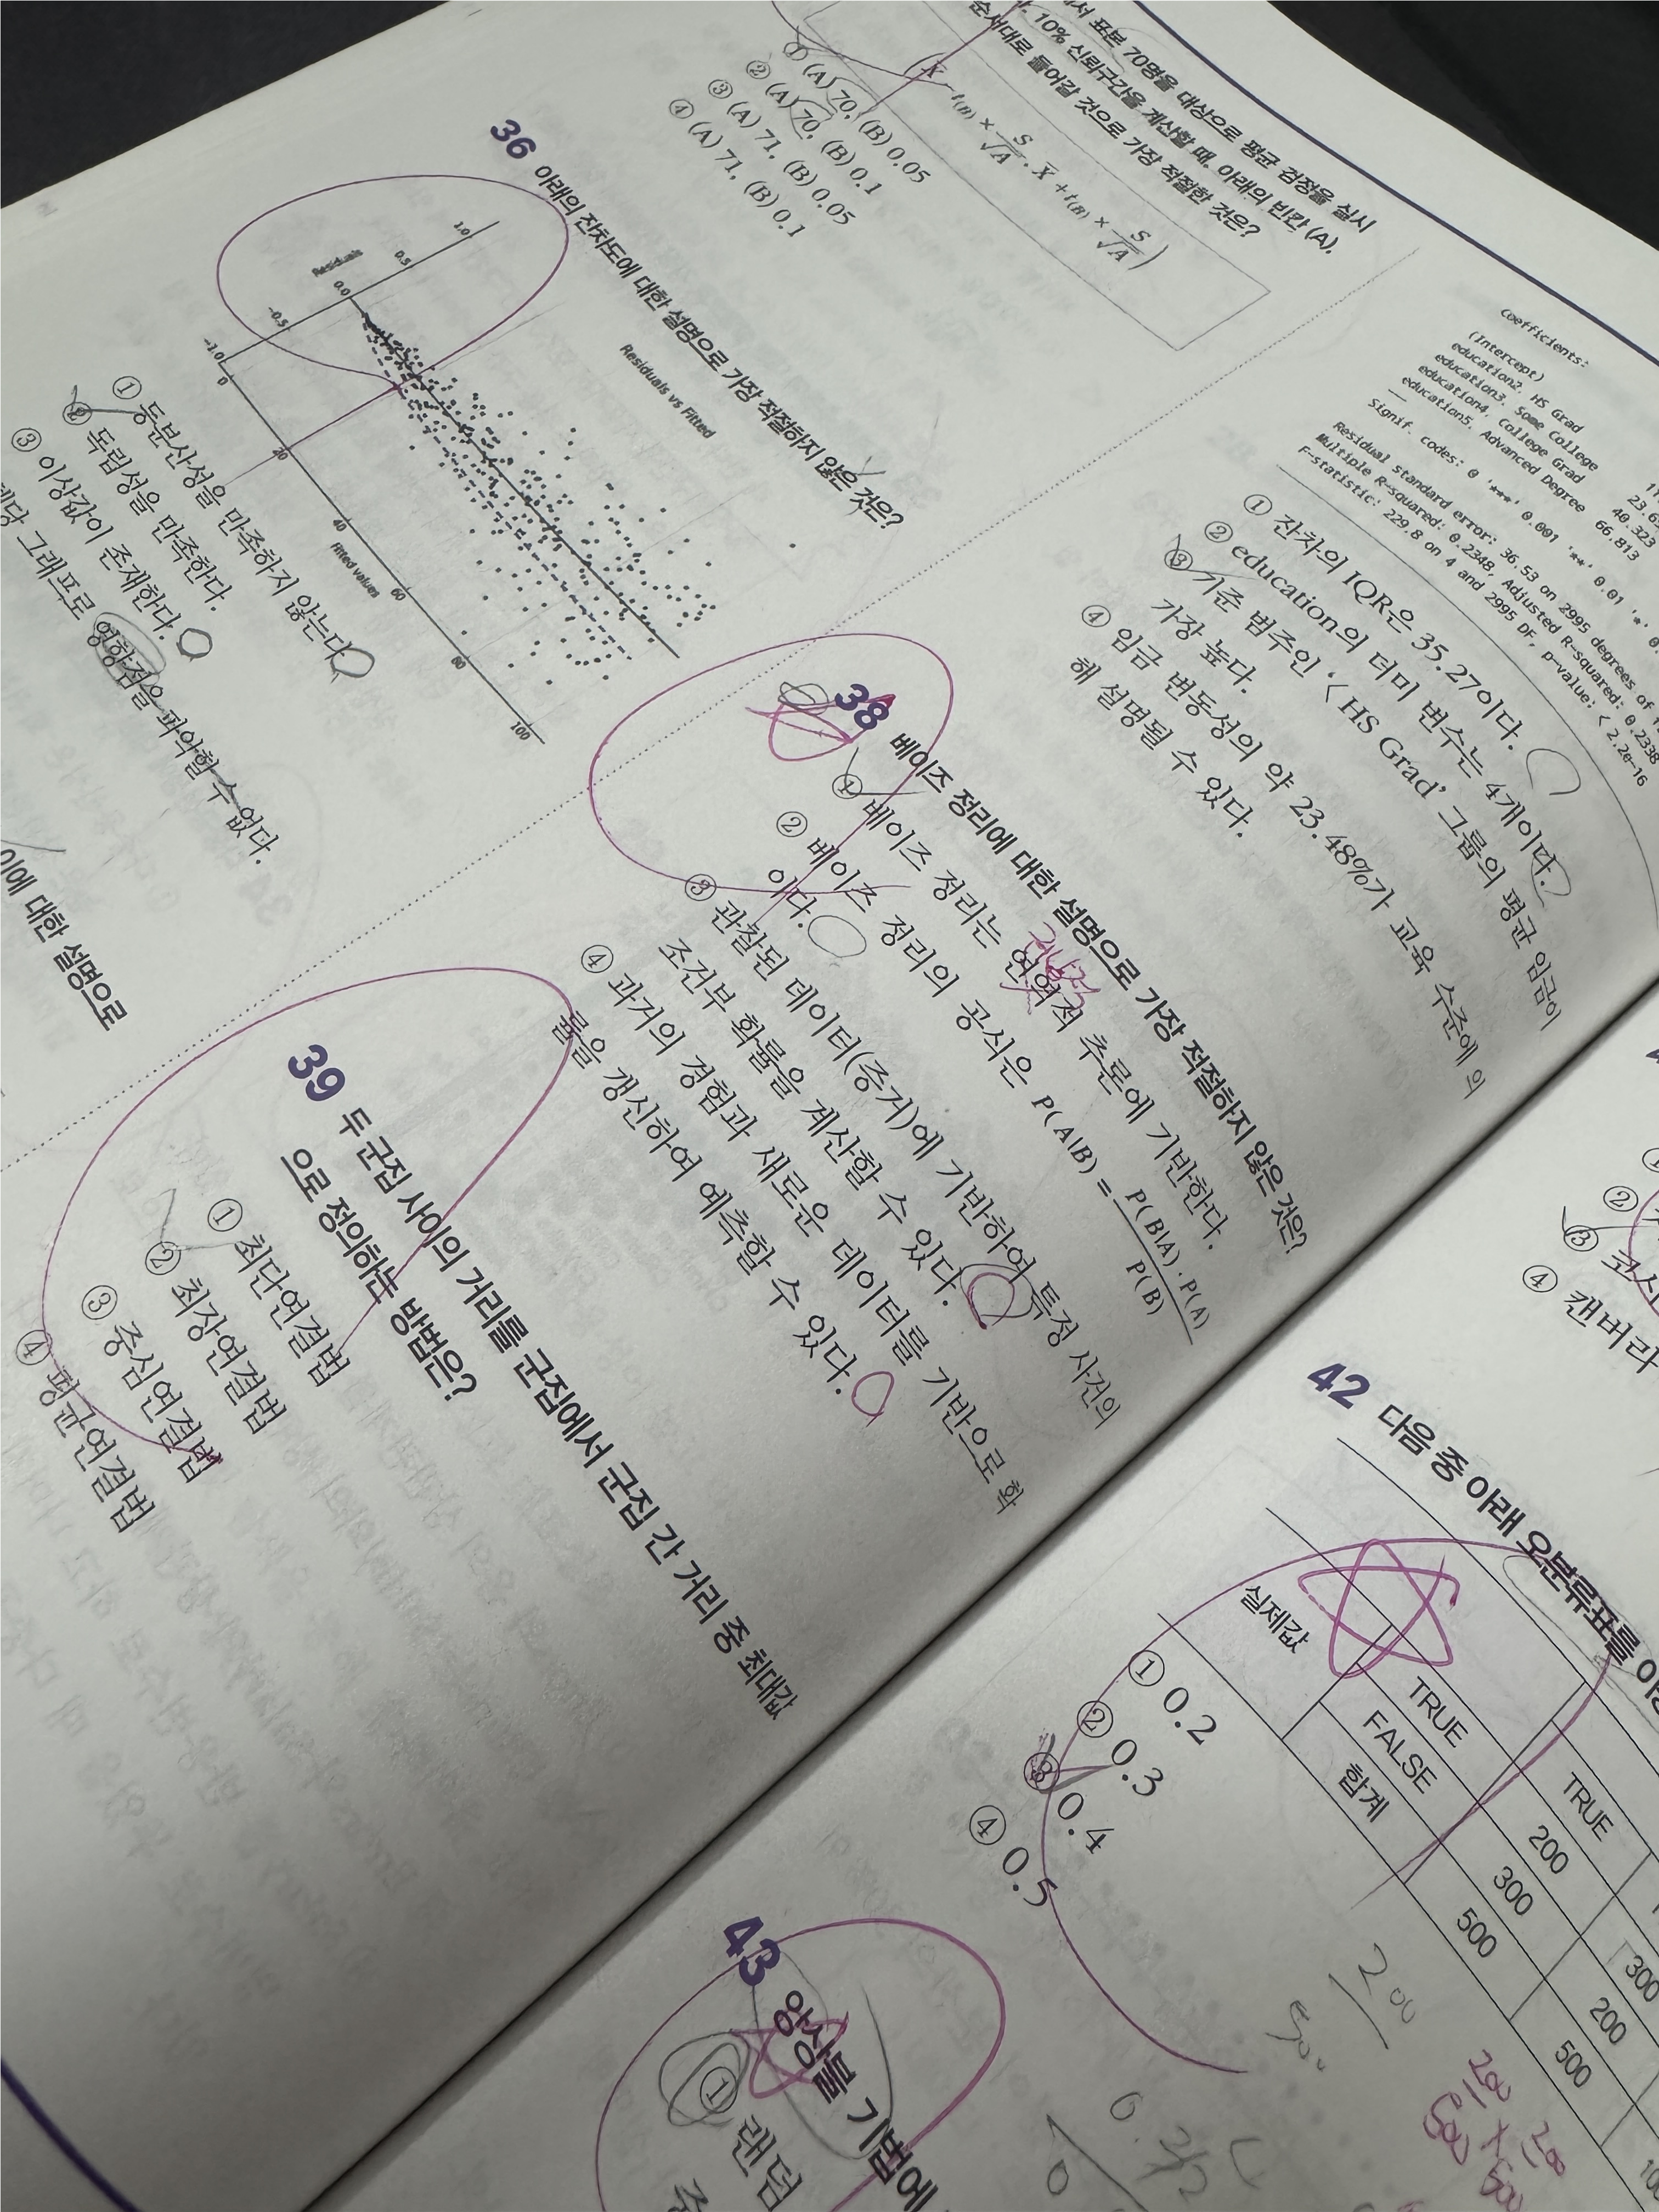 서 표본 70명을 대상으로 평균 검정을 실시
10% 신뢰구간을 계산할 때, 아래의 빈칸 (A),
순서대로 들어갈 것으로 가장 적절한 것은?
X − t(B) × S/√A , X + t(B) × S/√A )
① (A) 70, (B) 0.05
② (A) 70, (B) 0.1
③ (A) 71, (B) 0.05
④ (A) 71, (B) 0.1
36 아래의 잔차도에 대한 설명으로 가장 적절하지 않은 것은?
Residuals vs Fitted
Residuals
1.0
0.5
0.0
-0.5
-1.0
0 20 40 60 80 100
Fitted values
① 등분산성을 만족하지 않는다.
② 독립성을 만족한다.
③ 이상값이 존재한다.
해당 그래프로 영향점을 파악할 수 없다.
이에 대한 설명으로
Coefficients:
(Intercept)
education2. HS Grad
education3. Some College 23.6
education4. College Grad 40.323
education5. Advanced Degree 66.813
Signif. codes: 0 '***' 0.001 '**' 0.01 '*'
Residual standard error: 36.53 on 2995 degrees of
Multiple R-squared: 0.2348, Adjusted R-squared: 0.2338
F-statistic: 229.8 on 4 and 2995 DF, p-value: < 2.2e-16
① 잔차의 IQR은 35.27이다.
② education의 더미 변수는 4개이다.
③ 기준 범주인 '< HS Grad' 그룹의 평균 임금이
가장 높다.
④ 임금 변동성의 약 23.48%가 교육 수준에 의
해 설명될 수 있다.
38 베이즈 정리에 대한 설명으로 가장 적절하지 않은 것은?
① 베이즈 정리는 연역적 추론에 기반한다.
② 베이즈 정리의 공식은 P(A|B) = P(B|A)·P(A) / P(B)
이다.
③ 관찰된 데이터(증거)에 기반하여 특정 사건의
조건부 확률을 계산할 수 있다.
④ 과거의 경험과 새로운 데이터를 기반으로 확
률을 갱신하여 예측할 수 있다.
39 두 군집 사이의 거리를 군집에서 군집 간 거리 중 최대값
으로 정의하는 방법은?
① 최단연결법
② 최장연결법
③ 중심연결법
④ 평균연결법
②
③ 코사
④ 캔버라
42 다음 중 아래 오분류표를
TRUE
실제값 TRUE 200 300
FALSE 300 200
합계 500 500
① 0.2
② 0.3
③ 0.4
④ 0.5
200
500
200 × 200
500 500
43 앙상블 기법에
① 랜덤